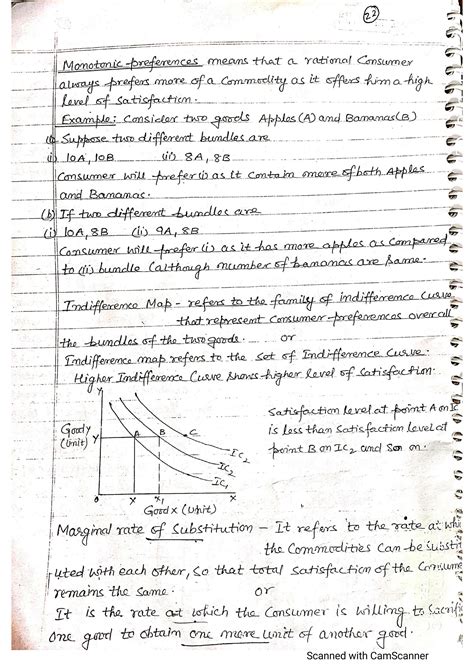 22
Monotonic preferences means that a rational Consumer
always prefers more of a Commodity as it offers him a high
level of satisfaction.
Example: Consider two goods Apples (A) and Bananas (B)
Suppose two different bundles are
(i) 10A, 10B (ii) 8A, 8B
Consumer will prefer (i) as it contain more of both Apples
and Bananas.
(b) If two different bundles are
(i) 10A, 8B (ii) 9A, 8B
Consumer will prefer (i) as it has more apples as compared
to (ii) bundle (although number of bananas are same.
Indifference Map - refers to the family of indifference Curve
that represent Consumer preferences over all
the bundles of the two goods. or
Indifference map refers to the set of Indifference Curve.
Higher Indifference Curve shows higher level of satisfaction.
Y
Good y
(Unit)
Y
A B C
IC2
IC2
IC1
0 X X1 X
Good x (Unit)
Satisfaction level at point A on IC
is less than satisfaction level at
point B on IC2 and so on.
Marginal rate of Substitution - It refers to the rate at whi
the Commodities Can be Substit
uted with each other, so that total satisfaction of the Consume
remains the same. or
It is the rate at which the Consumer is willing to Sacrific
one good to obtain one more unit of another good.
Scanned with CamScanner